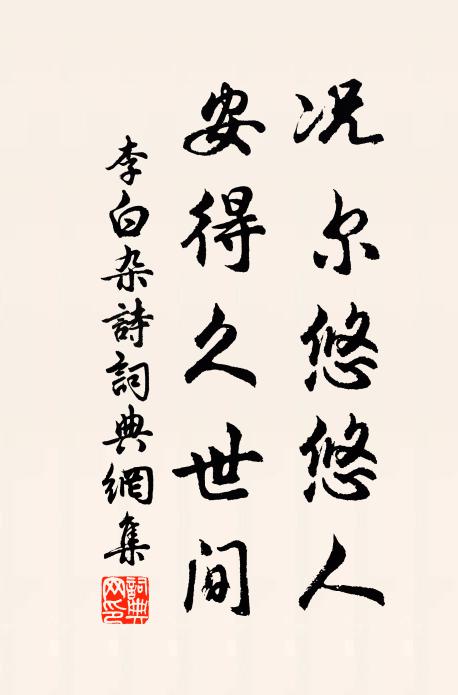 况尔悠悠人
安得久世间
李白杂詩詞典網集
詞典
网印